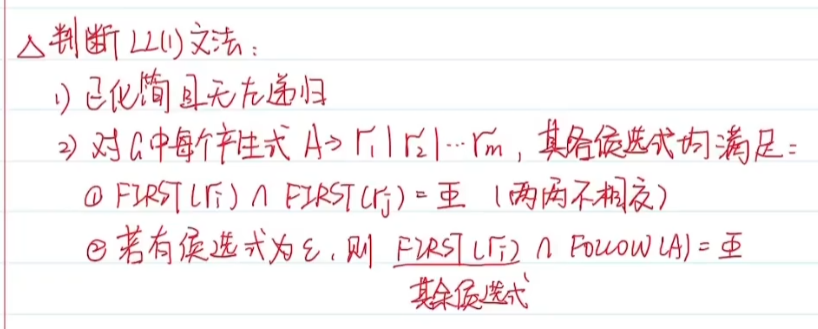 △判断LL(1)文法：
1) 已化简且无左递归
2) 对G中每个产生式 A→ r₁|r₂|…rₘ，其各侯选式均满足：
① FIRST(rᵢ) ∩ FIRST(rⱼ) = 亚 (两两不相交)
② 若有侯选式为ε，则 FIRST(rᵢ) ∩ FOLLOW(A) = 亚
其余侯选式